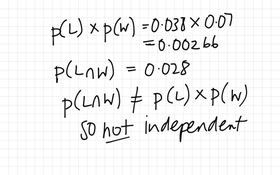 p(L) × p(W) = 0.038 × 0.07
= 0.00266
p(L∩W) = 0.028
p(L∩W) ≠ p(L) × p(W)
so not independent